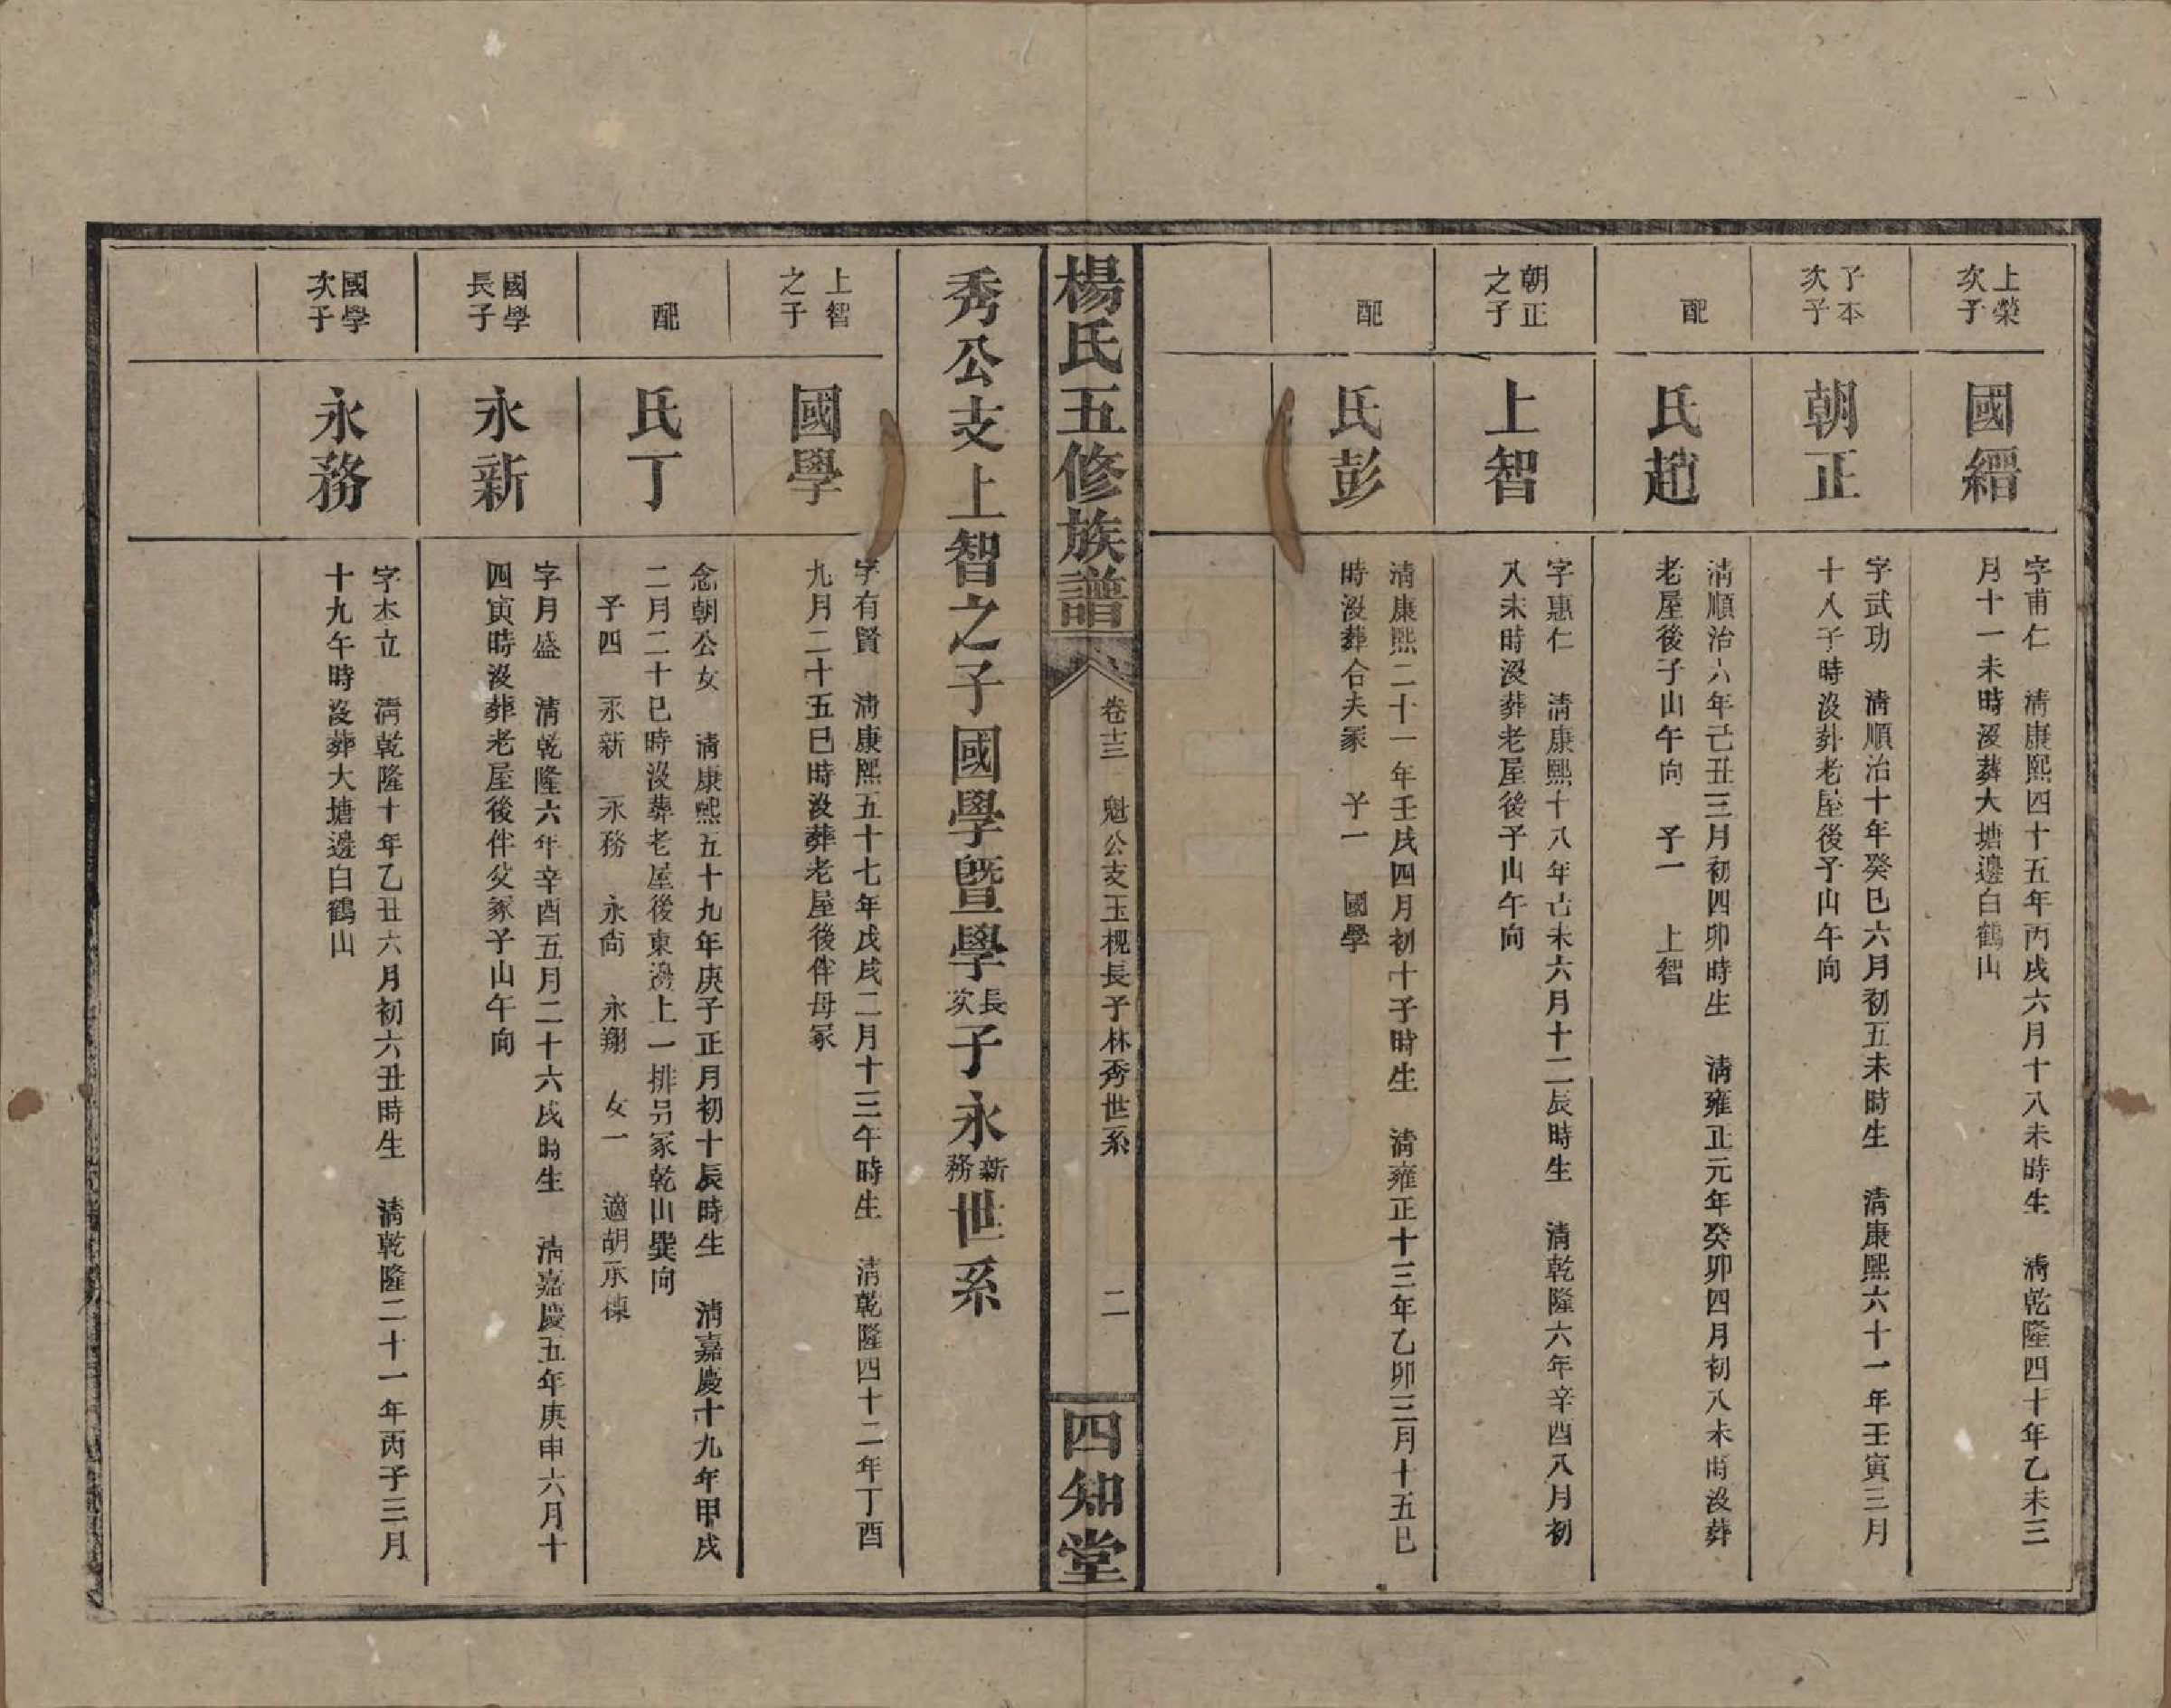 上榮
次子
國縉
字甫仁　清康熙四十五年丙戌六月十八未時生　清乾隆四十年乙未三
月十一未時沒葬大塘邊白鶴山
子本
次子
朝正
字武功　清順治十年癸巳六月初五未時生　清康熙六十一年壬寅三月
十八子時沒葬老屋後子山午向
配
氏趙
清順治六年己丑三月初四卯時生　清雍正元年癸卯四月初八未時沒葬
老屋後子山午向　子一　上智
朝正
之子
上智
字惠仁　清康熙十八年己未六月十二辰時生　清乾隆六年辛酉八月初
八未時沒葬老屋後子山午向
配
氏彭
清康熙二十一年壬戌四月初十子時生　清雍正十三年乙卯三月十五巳
時沒葬合夫冢　子一　國學
楊氏五修族譜
卷十三　魁公支玉梘長子林秀世系　二
四知堂
秀公支上智之子國學暨學長次子永新務世系
上智
之子
國學
字有賢　清康熙五十七年戊戌二月十三午時生　清乾隆四十二年丁酉
九月二十五巳時沒葬老屋後伴母冢
配
氏丁
念朝公女　清康熙五十九年庚子正月初十辰時生　清嘉慶十九年甲戌
二月二十巳時沒葬老屋後東邊上一排另冢乾山巽向
子四　永新　永務　永尙　永翔　女一　適胡永棟
國學
長子
永新
字月盛　清乾隆六年辛酉五月二十六戌時生　清嘉慶五年庚申六月十
四寅時沒葬老屋後伴父冢子山午向
國學
次子
永務
字本立　清乾隆十年乙丑六月初六丑時生　清乾隆二十一年丙子三月
十九午時沒葬大塘邊白鶴山